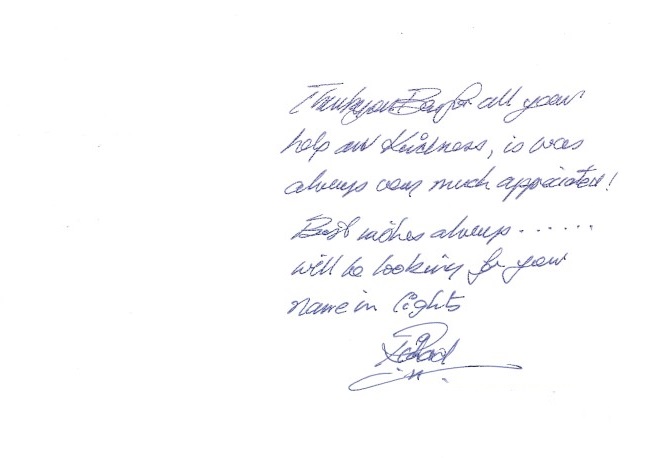 Thankyou Bay for all your
help and Kindness, is was
always very much appreciated!
Best wishes always.......
will be looking for your
name in lights